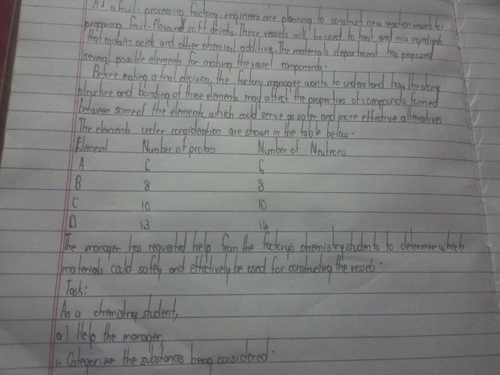 At a fruit-processing factory, engineers are planning to construct new reaction vessels for
preparing fruit-flavoured soft drinks. These vessels will be used to heat and mix ingredients
that contain acids and other chemical additives. The materials department has proposed
several possible elements for making the vessel components.
Before making a final decision, the factory manager wants to understand how the atomic
structure and bonding of these elements may affect the properties of compounds formed
between some of the elements, which could serve as safer and more effective alternatives
The elements under consideration are shown in the table below.
Element Number of protons Number of Neutrons
A 6 6
B 8 8
C 10 10
D 13 14
The manager has requested help from the factory's chemistry students to determine which
materials could safely and effectively be used for constructing the vessels.
Task:
As a chemistry student,
a) Help the manager,
i. Categorize the substances being considered.